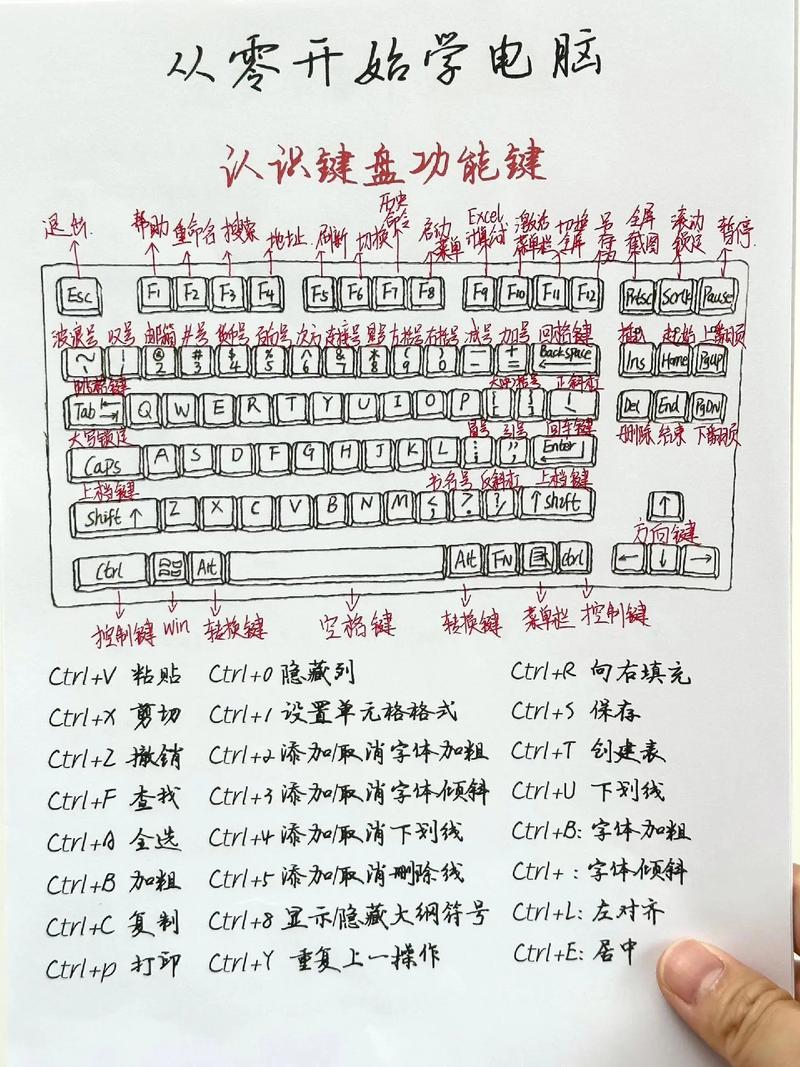 从零开始学电脑
认识键盘功能键
退出 帮助 重命名 搜索 地址 刷新 切换 历史命令 启动菜单 Excel计算公式 激活菜单栏 切换全屏 另存为 全屏截图 滚动锁定 暂停
Esc F1 F2 F3 F4 F5 F6 F7 F8 F9 F10 F11 F12 Prtsc Scrlk Pause
波浪号 叹号 邮箱 井号 货币号 百分号 次方 连接号 星号 左括号 右括号 减号 加号 回格键 插入 起始 上翻页
~ ! @ 2 # 3 $ 4 % 5 ^ 6 & 7 * 8 ( 9 ) 0 - + = Backspace Ins Home PgUp
跳格键 大中括号 正斜杠
Tab Q W E R T Y U I O P Del End PgDn
大写锁定 冒号 引号 回车键 删除 结束 下翻页
Caps A S D F G H J K L Enter
上档键 书名号 反斜杠
Shift ↑ Z X C V B N M ↑ Shift ↑
方向键
Ctrl Alt Alt FN Ctrl ← ↓ →
控制键 Win 转换键 空格键 转换键 菜单栏 控制键
Ctrl+V 粘贴 Ctrl+0 隐藏列 Ctrl+R 向右填充
Ctrl+X 剪切 Ctrl+1 设置单元格格式 Ctrl+S 保存
Ctrl+Z 撤销 Ctrl+2 添加/取消字体加粗 Ctrl+T 创建表
Ctrl+F 查找 Ctrl+3 添加/取消字体倾斜 Ctrl+U 下划线
Ctrl+A 全选 Ctrl+4 添加/取消下划线 Ctrl+B: 字体加粗
Ctrl+B 加粗 Ctrl+5 添加/取消删除线 Ctrl+ : 字体倾斜
Ctrl+C 复制 Ctrl+8 显示/隐藏大纲符号 Ctrl+L: 左对齐
Ctrl+p 打印 Ctrl+Y 重复上一操作 Ctrl+E: 居中